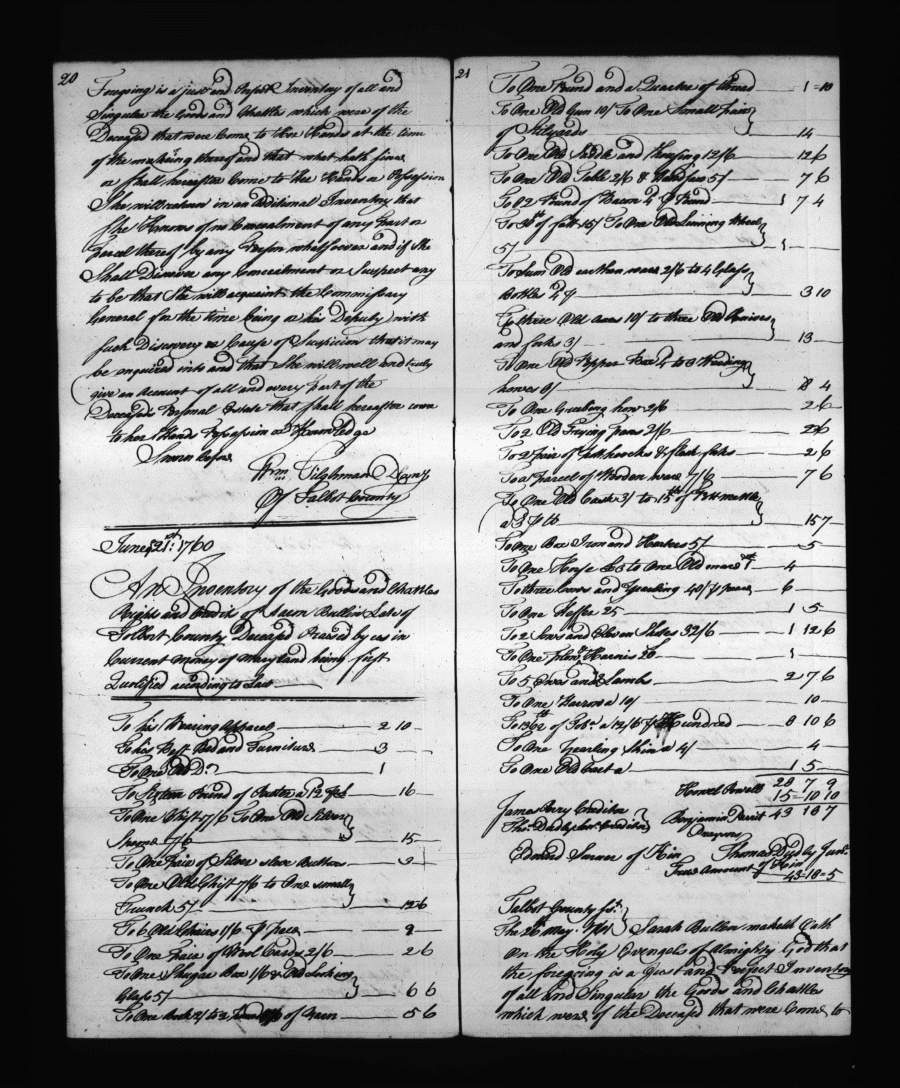 20
Foregoing is a just and Perfect Inventory of all and
Singular the Goods and Chattles which were of the
Deceased that were Come to thee Hands at the time
of the makeing thereof and that what hath since
or shall hereafter Come to thee Hands or Possession
She will return in an additional Inventory that
She Knows of no Concealment of any Part or
Parcel thereof by any Person whatsoever and if She
Shall Discover any Concealment or Suspect any
to be that She will acquaint the Commissary
General for the time being or his Deputy with
such Discovery or Cause of Suspicion that it may
be enquired into and that She will well and truly
give an Account of all and every part of the
Deceaseds Personal Estate that shall hereafter come
to her Hands Possession or Knowledge
Sworn before
Wm Tilghman Depty
Of Talbot County
June 21st: 1760
An Inventory of the Goods and Chattles
Rights and Credits of Aaron Bullin Late of
Tolbert County Deceased Praised by us in
Current money of Maryland being first
Qualified according to Law
To his Wearing Apparel 2 10
To his Best Bed and Furniture 3
To One Old Do 1
To Sixteen Pound of Pewter a 12 16
To One Chist 7/6 To One Old Silver
Spoone 7/6 15
To One Paire of Silver sleve Buttons 3
To One Old Chist 7/6 to One small
Trunck 5/ 12 6
To 6 Old Chaires 1/6 P peace 9
To One Paire of Wool Cards 2/6 2 6
To One Shugar Box 1/6 & Old Looking
Glass 5/ 6 6
To One 2/ to 3 of Yarn 5 6
21
To One Pound and a Quarter of thread 1 10
To One Old Gun 10/ To One Small pair
of Stilyards 14
To One Old Saddle and Howsing 12/6 12 6
To One Old Table 2/6 & 5/ 7 6
To Pound of Bacon 4d P Pound 1 7 4
To of salt 15/ To One Old Linning Wheel
5/ 1
To Sum Old earthen ware 2/6 to 4 Glass
Bottles 4d P 3 10
To three Old axes 10/ to three Old
and forks 3/ 13
To One Old Pepper Box 4 to 3 Weeding
howes 8/ 8 4
To One Grubing how 2/6 2 6
To 2 Old Frying pans 2/6 2 6
To 2 pair of pothoocks & flesh forks 2 6
To a parcel of Wooden ware 7/6 7 6
To One Old Cask 3/ to of Pott mettle
a 3 P lb 15 7
To One Box Iron and Heaters 5/ 5
To One Horse £3 to One Old mare 4
To three Cows and Yearling 40/ P peace 6
To One Heffer 25 1 5
To 2 Sows and Eleven Shotes 32/6 1 12 6
To One Harnis 20 1
To 5 Ewes and Lambs 2 7 6
To One Harrow a 10/ 10
To 1362 of Tobo a 12/6 P Hundred 8 10 6
To One Yearling Skin a 4/ 4
To One Old Cart a 1 5
Howel Powell 28 7 9
15 10 10
James Berry Creditor Benjamin Parrit 43 18 7
Thos Dudly Junr Creditor
Edward Turner of Kin Thomas Dudly Junr
of Kin
True Amount £ 43-18-5
Talbot County sst.
The 26th May 1761 Sarah Bullen maketh Oath
on the Holy Evengels of Almighty God that
the foregoing is a Just and Perfect Inventory
of all and Singular the Goods and Chattles
which were of the Deceased that were Come to